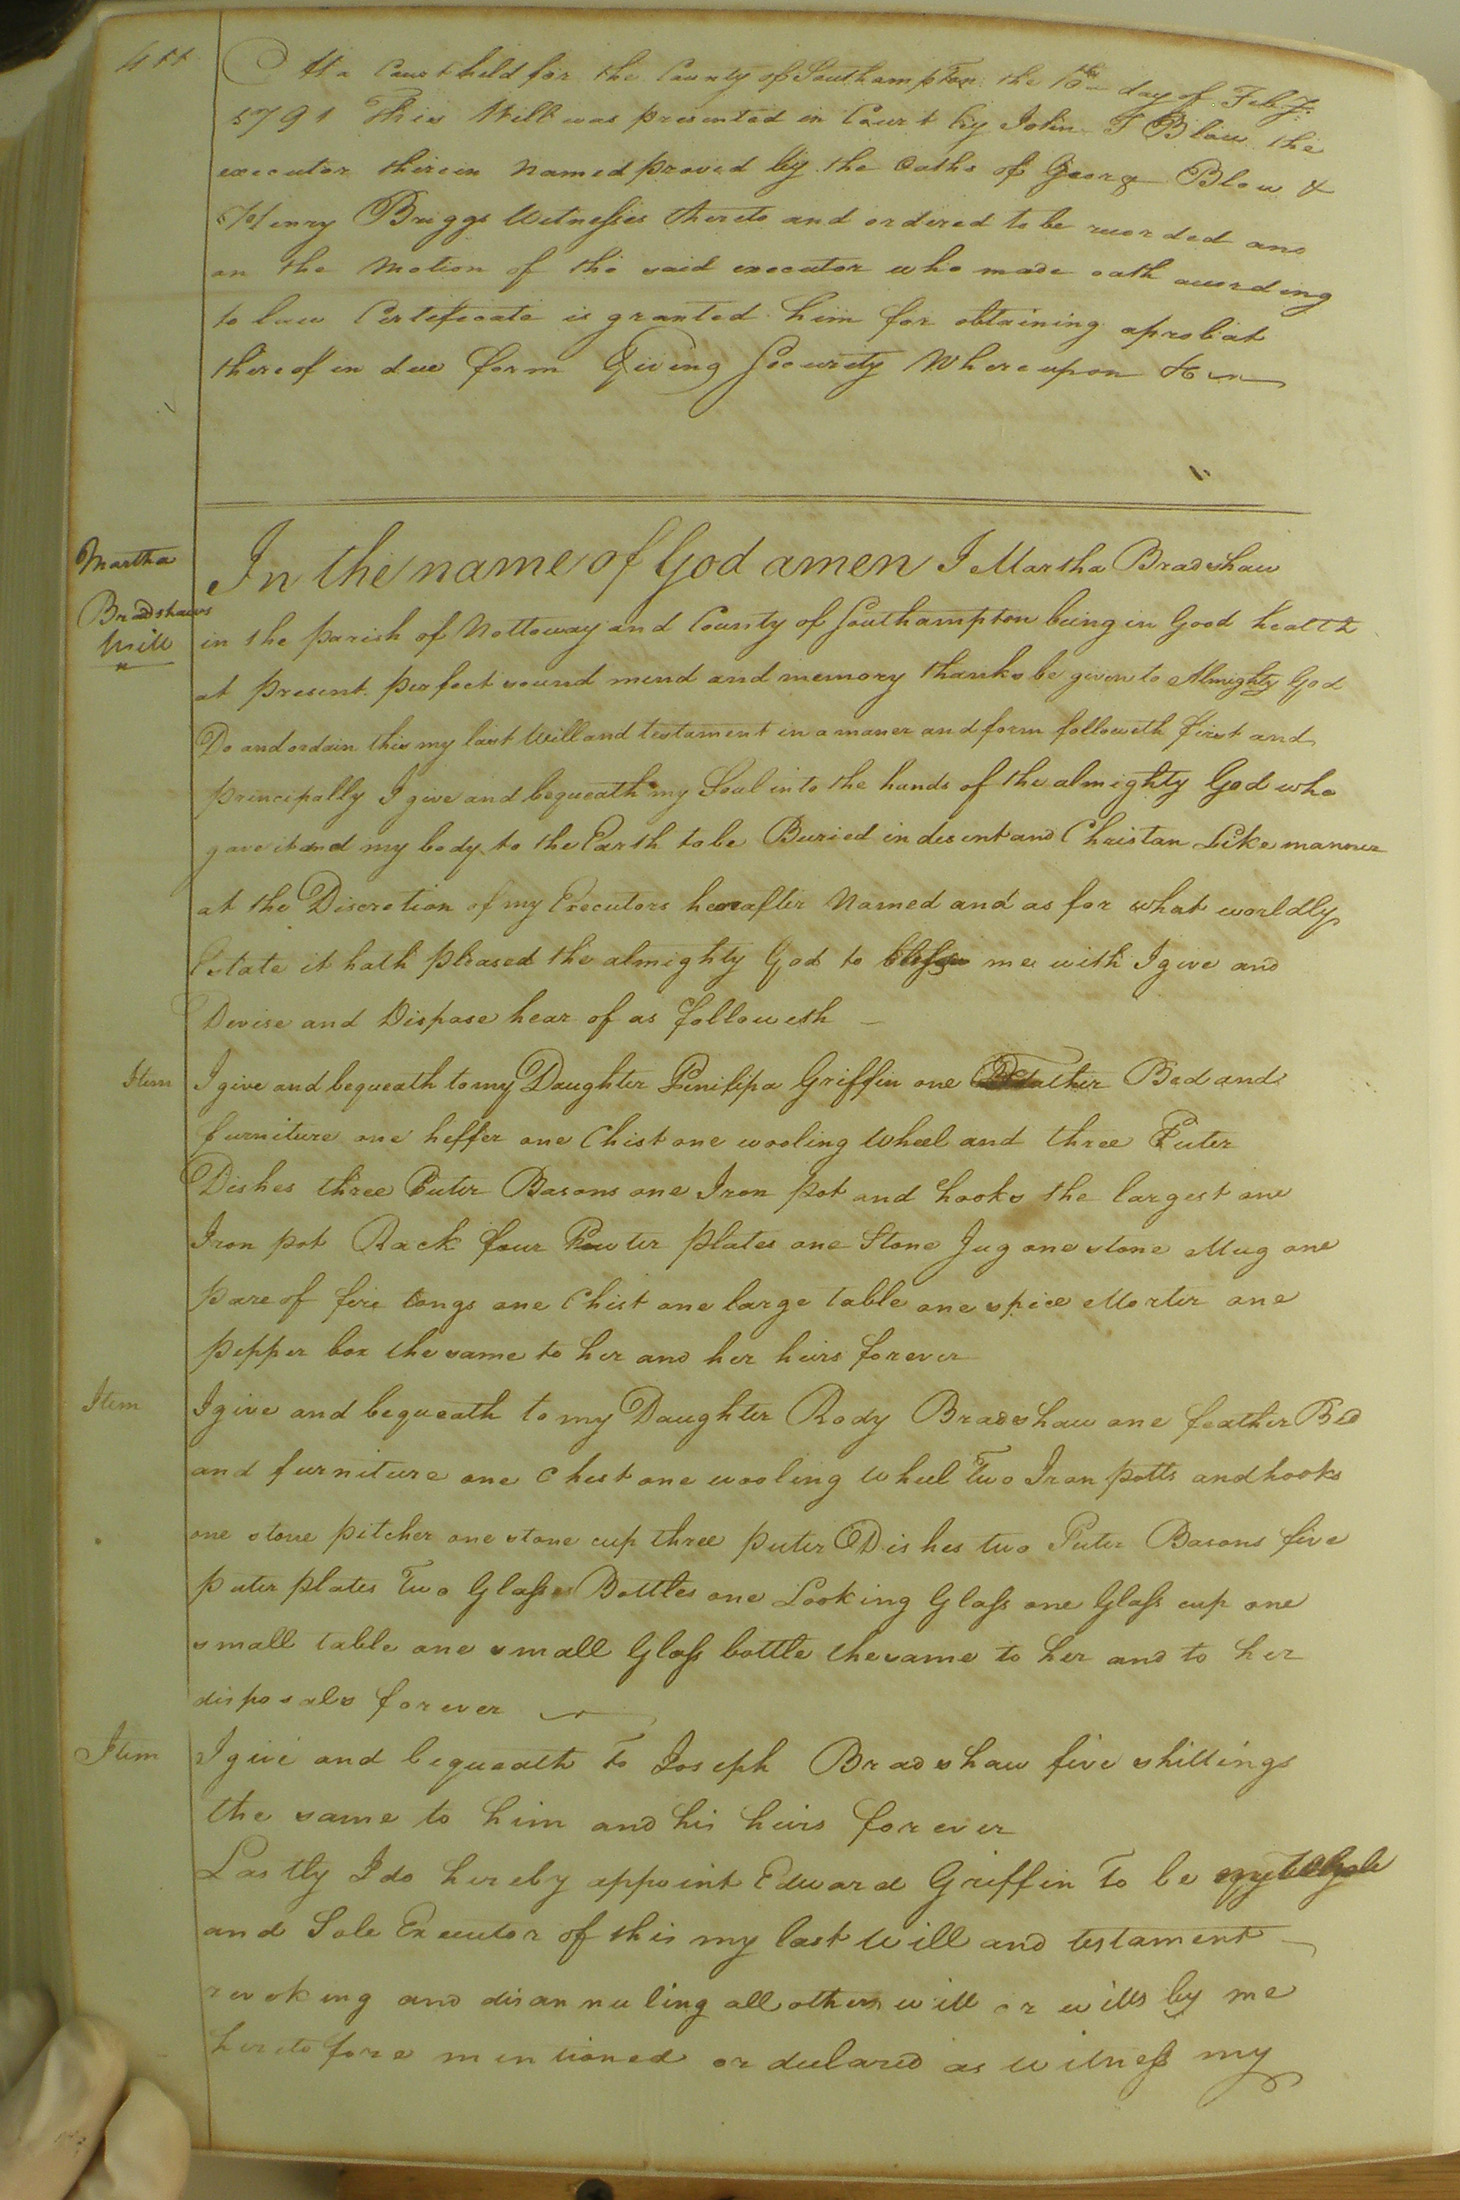 At a Court held for the County of Southampton the 10th day of Feby.
1791 This Will was presented in Court by John T Blow the
executor therein named proved by the Oaths of George Blow &
Henry Briggs Witnesses thereto and ordered to be recorded and
on the Motion of the said executor who made oath according
to law Certificate is granted him for obtaining a probat
thereof in due form Giving Security Whereupon &c
Martha
Bradshaws
Will
In the name of God amen I Marsha Bradshaw
in the parish of Nottoway and County of Southampton being in Good health
at present perfect sound mind and memory thanks be given to Almighty God
Do and ordain this my last Will and testament in a maner and form followeth first and
principally I give and bequeath my Soul into the hands of the almighty God who
gave it and my body to the Earth to be Buried in desent and Christan Like manner
at the Discretion of my Executors hereafter Named and as for what worldly
Estate it hath pleased the almighty God to bless me with I give and
Devise and Dispose hear of as followeth
Item I give and bequeath to my Daughter Penilipa Griffin one Feather Bed and
furniture one heffer one Chist one wooling Wheel and three Puter
Dishes three Puter Basons one Iron pot and hooks the largest one
Iron pot Rack four Pewter plates one Stone Jug one stone Mug one
pare of fire tongs one Chist one large table one spice Morter one
pepper box the same to her and her heirs forever
Item I give and bequeath to my Daughter Rody Bradshaw one feather Bed
and furniture one chest one wooling wheel Two Iron potts and hooks
one stone pitcher one stone cup three puter Dishes two Puter Basons five
puter plates Two Glass Bottles one Looking Glass one Glass cup one
small table one small Glass bottle the same to her and to her
disposals forever
Item I give and bequeath To Joseph Bradshaw five shillings
the same to him and his heirs forever
Lastly I do hereby appoint Edward Griffin To be my
and Sole Executor of this my last Will and testament
revoking and disannuling all others will or wills by me
heretofore mentioned or declared as witness my